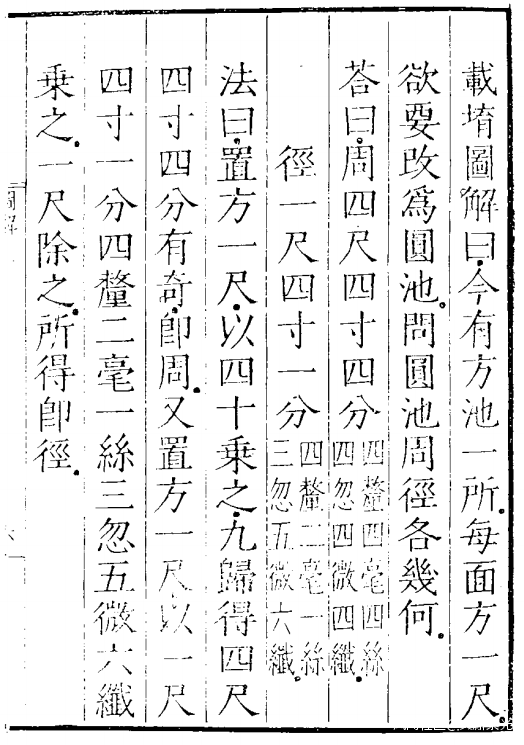 載堉圖解曰今有方池一所每面方一尺
欲要改爲圓池問圓池周徑各幾何
荅曰周四尺四寸四分四釐四毫四絲四忽四微四纖
徑一尺四寸一分四釐二毫一絲三忽五微六纖
法曰置方一尺以四十乘之九歸得四尺
四寸四分有奇卽周又置方一尺以一尺
四寸一分四釐二毫一絲三忽五微六纖
乘之一尺除之所得卽徑